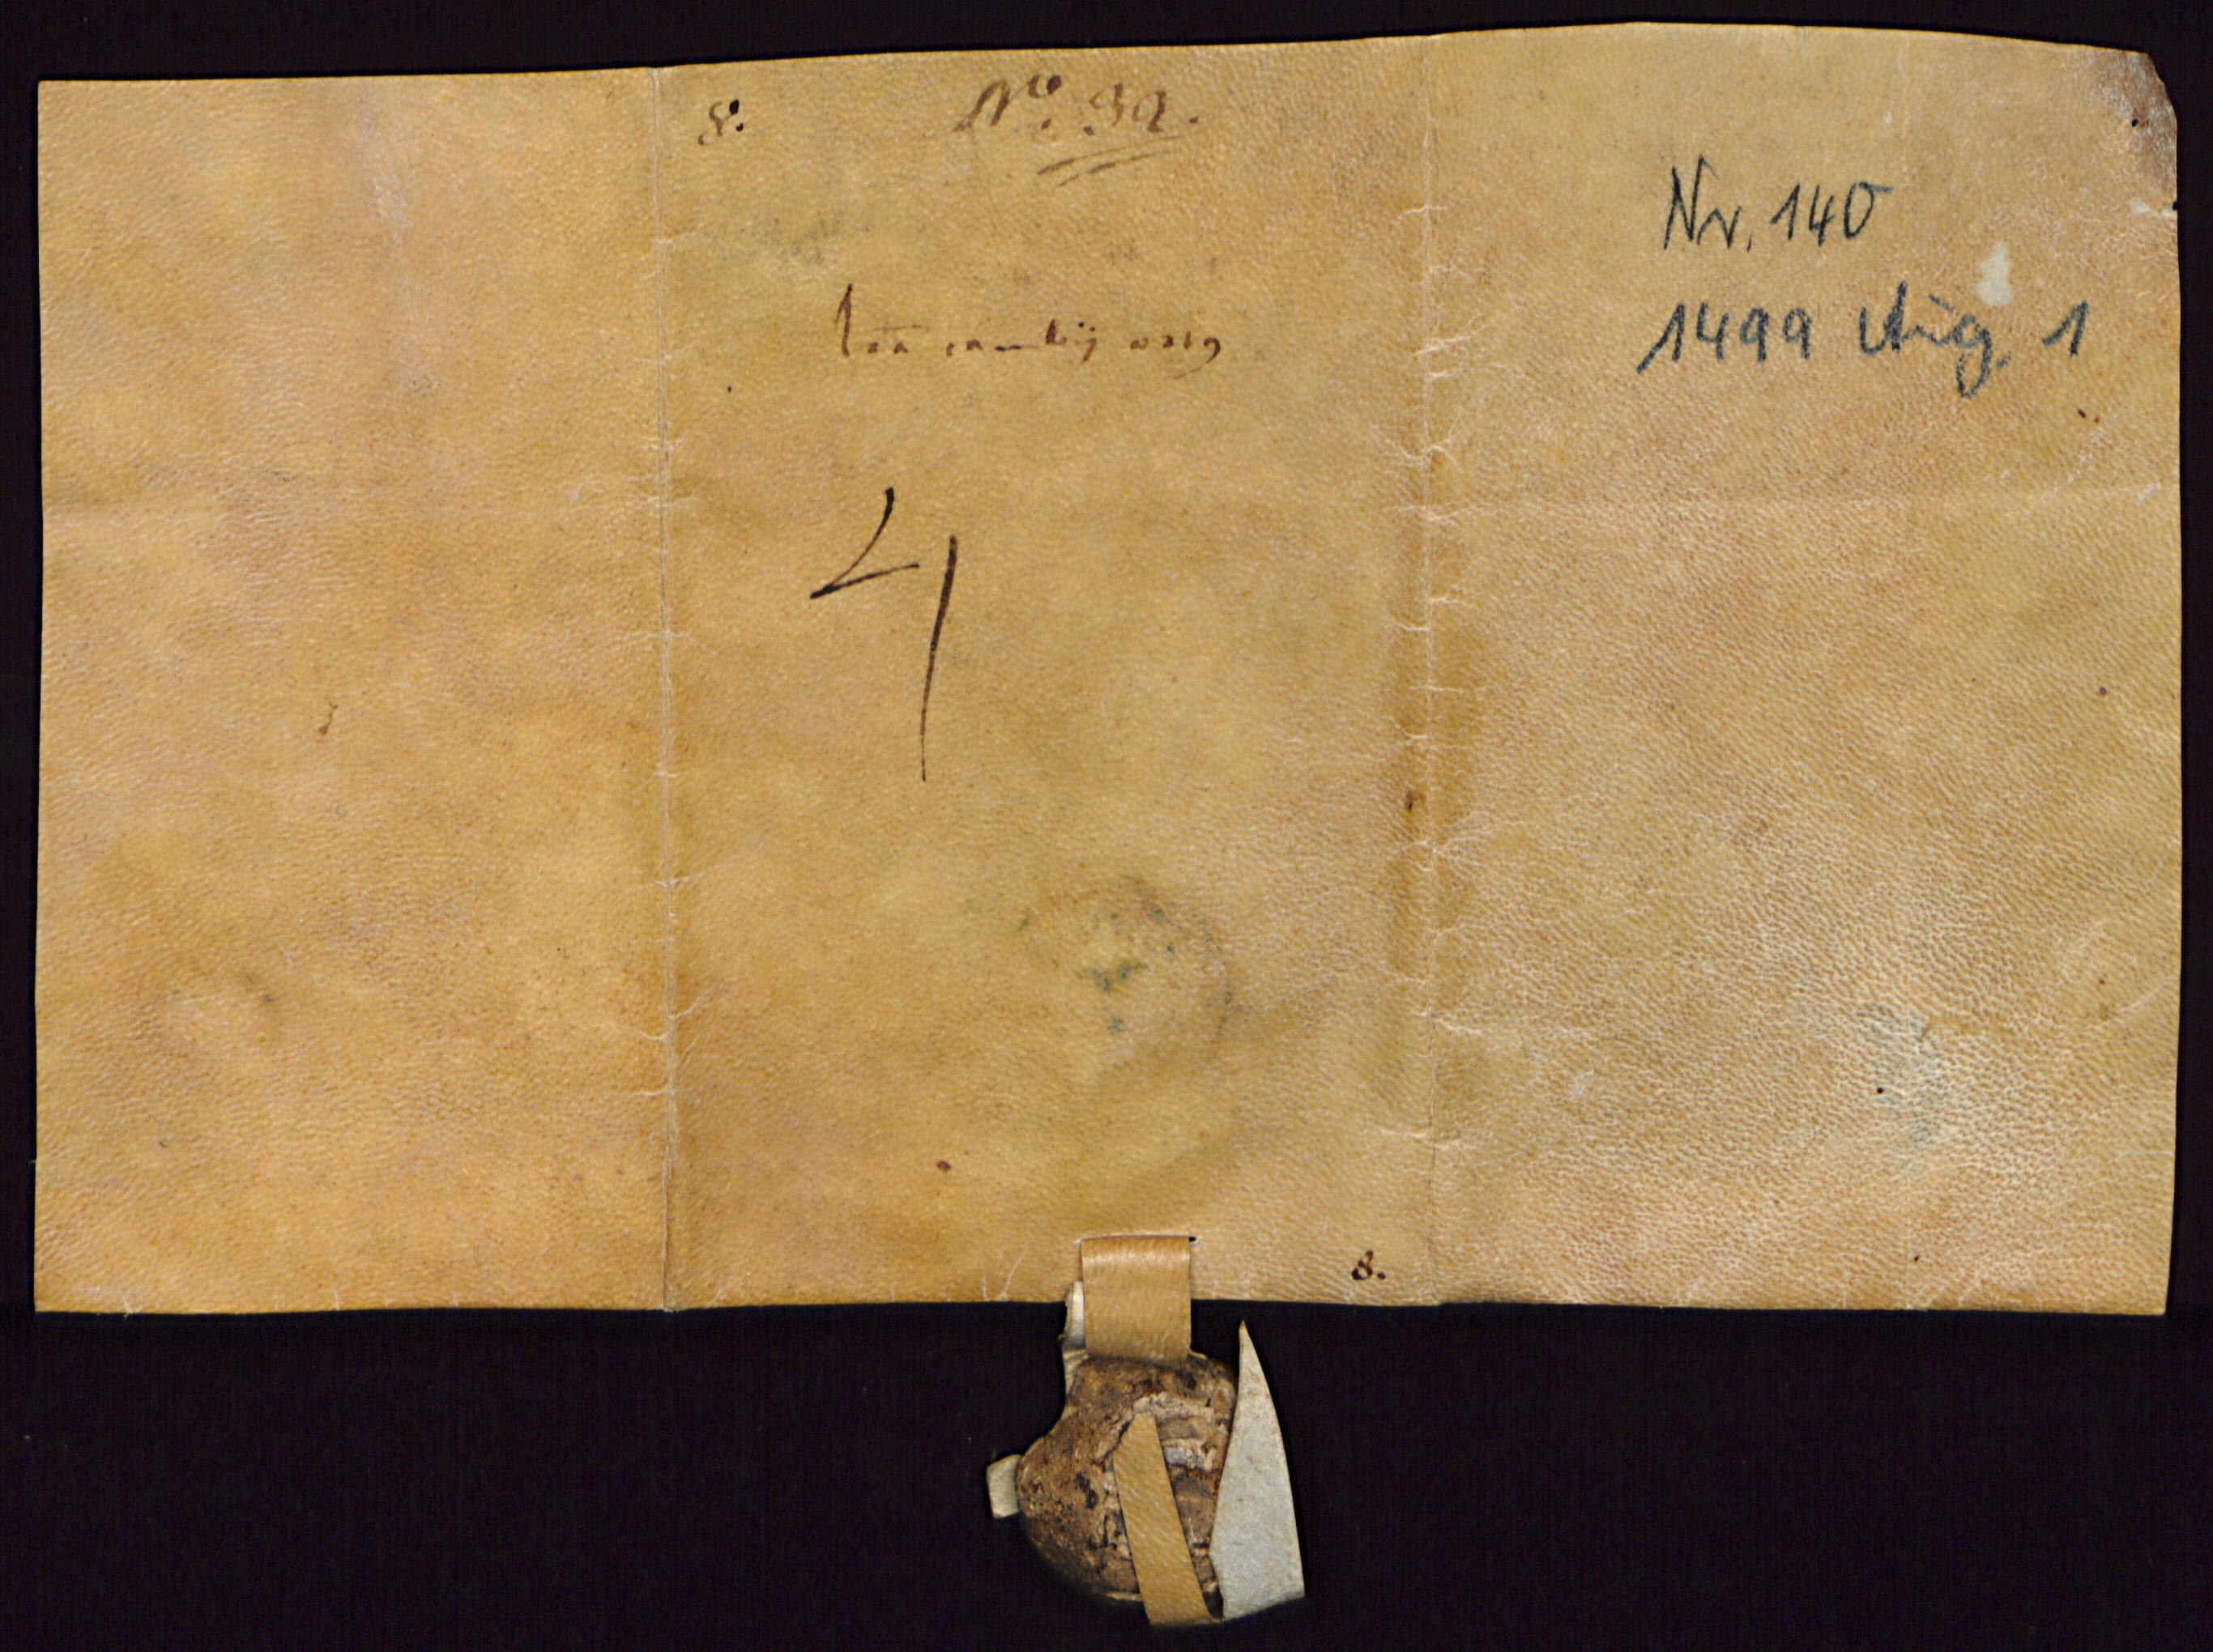 8. No. 39.
Nr. 140
1499 Aug. 1
4
8.